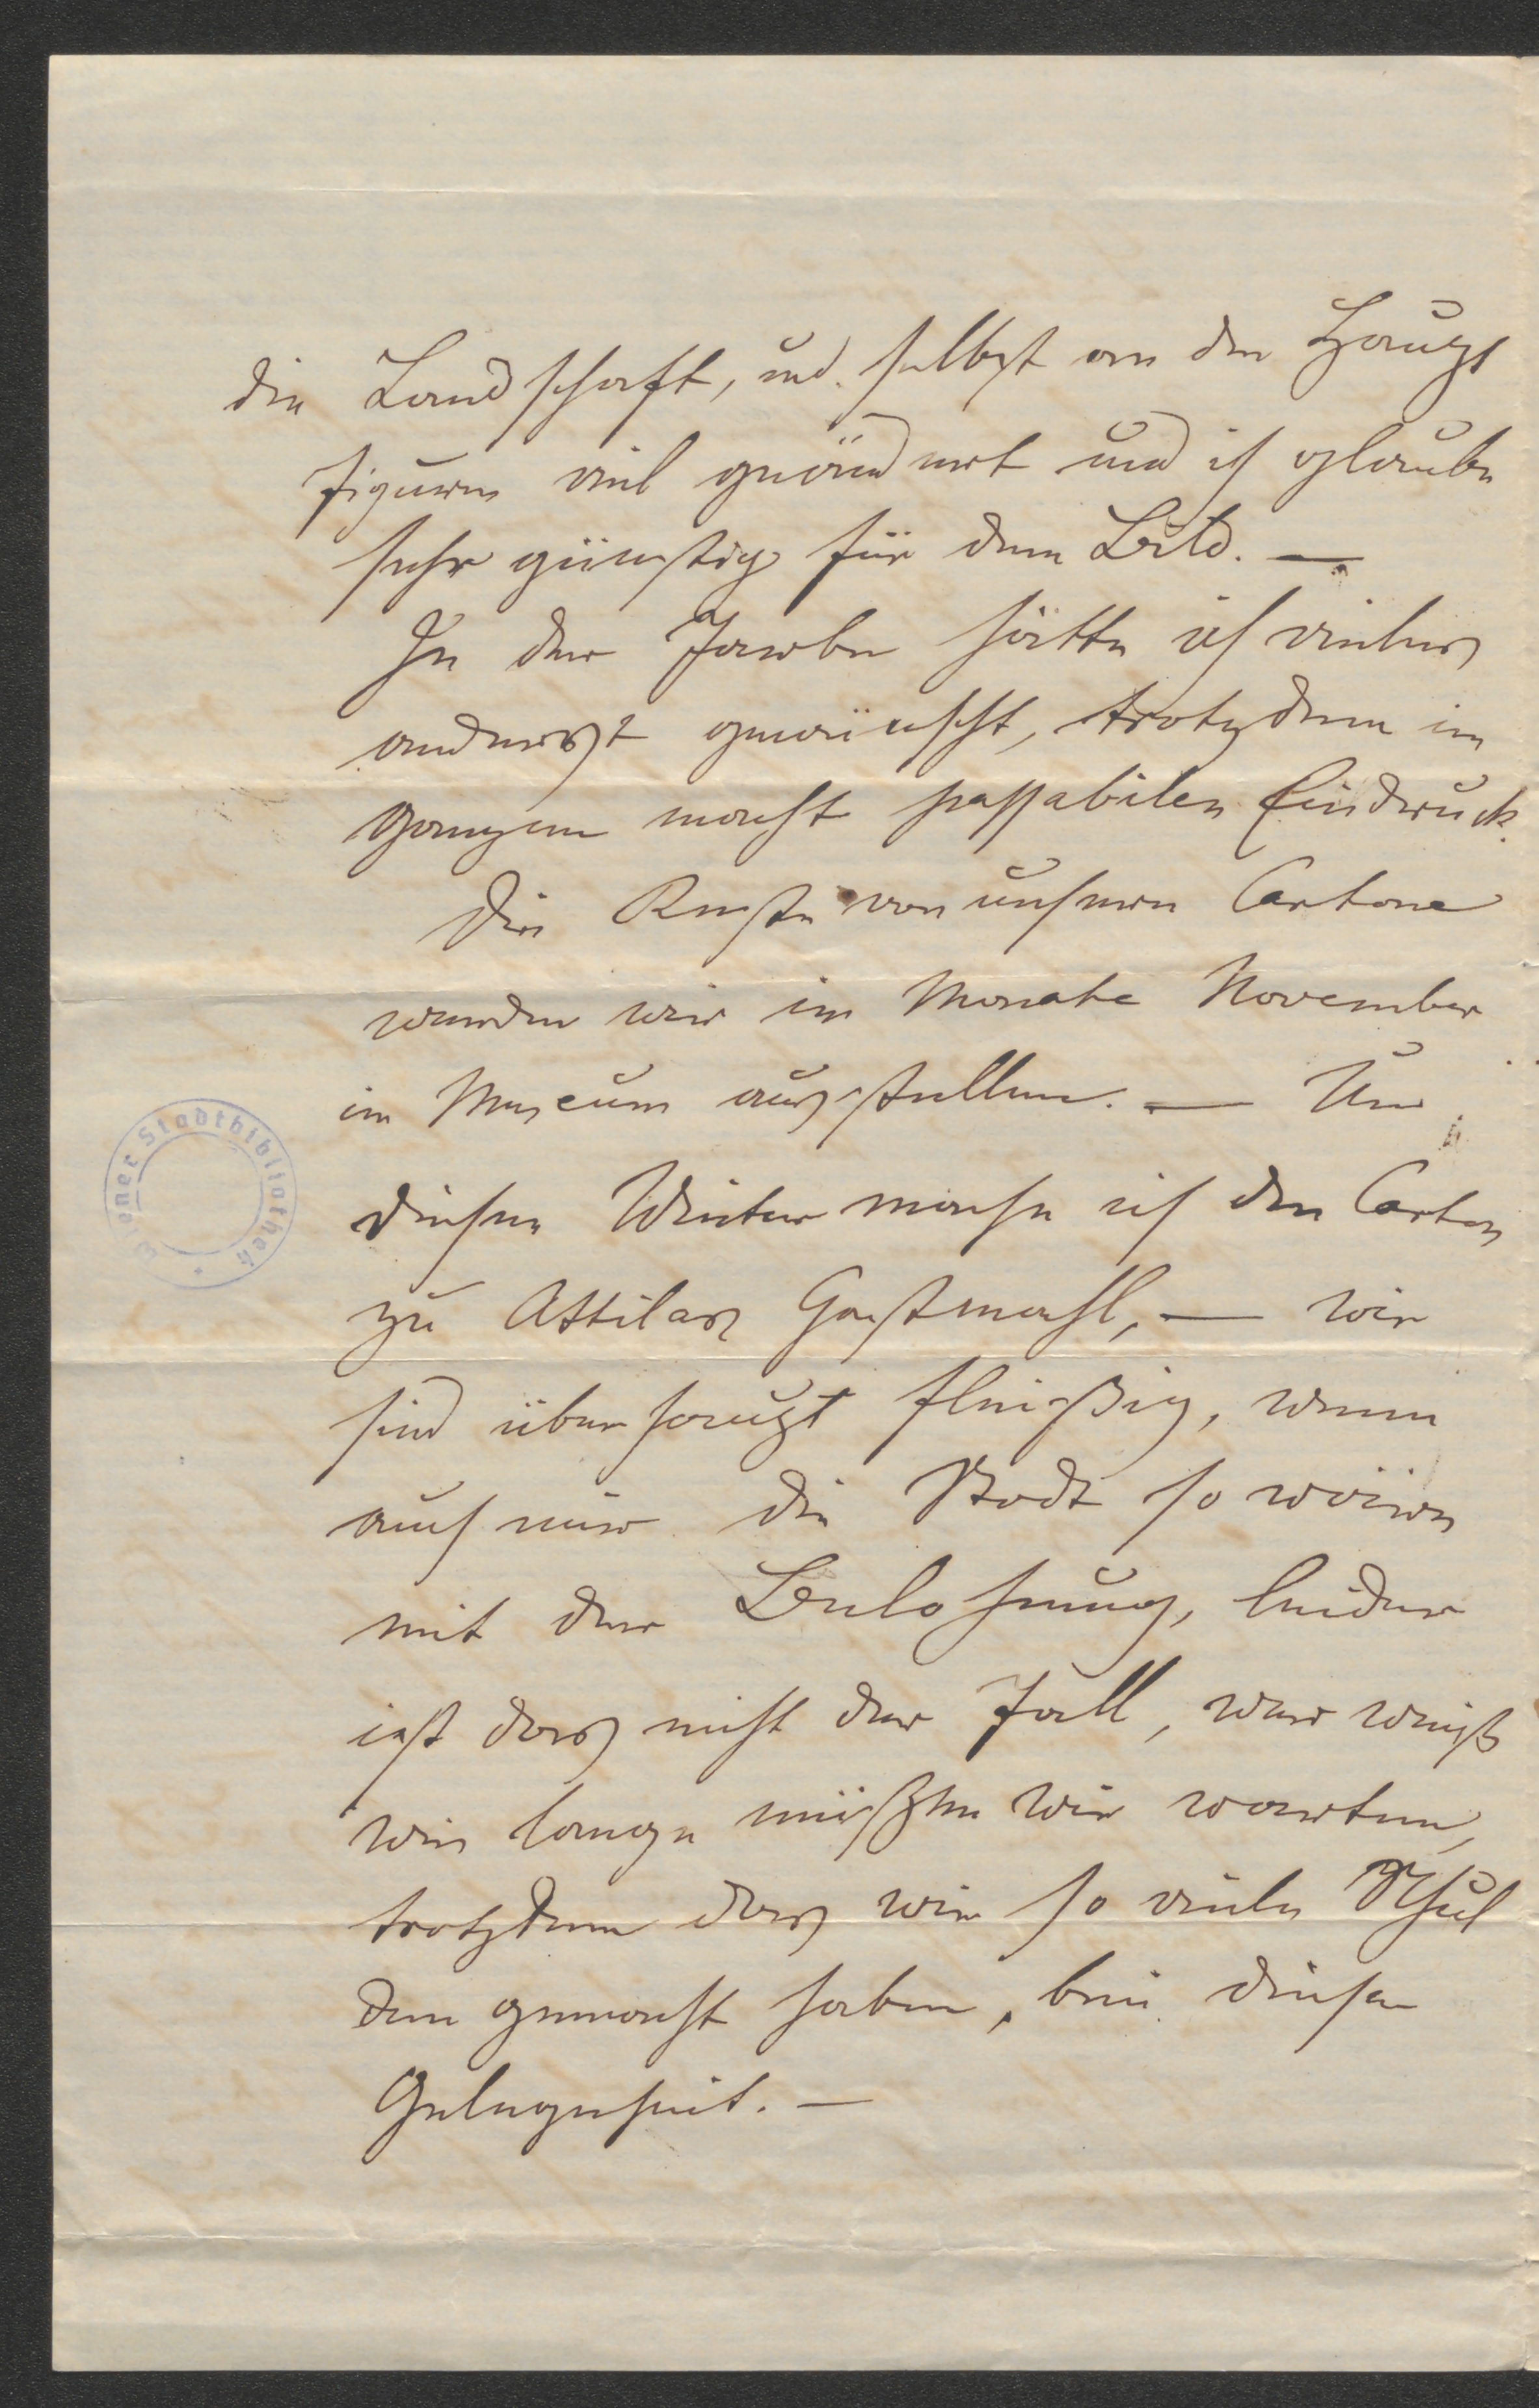 die Landschaft, und. selbst an den Haupt
figuren viel geändert und ich glaube
sehr günstig für dem Bild. —
In der Farbe hätte ich vieles
anderst gewünscht, trotzdem im
ganzen macht passabilen Eindruck.
Die Reste von unsern Cartone
werden wir im Monate November
im Museum ausstellen. — Un
diesen Winter mache ich den Carton
zu Attilas Gastmahl, — wir
sind überhaupt fleißig, wenn
auch nur die Stadt so wäre
mit der Belohnung, leider
ist das nicht der Fall, wer weiß
wie lange müßten wir warten,
trotzdem das wir so viele Schul
den gemacht haben, bei diesen
Gelegenheit. —
Wiener Stadtbibliothek